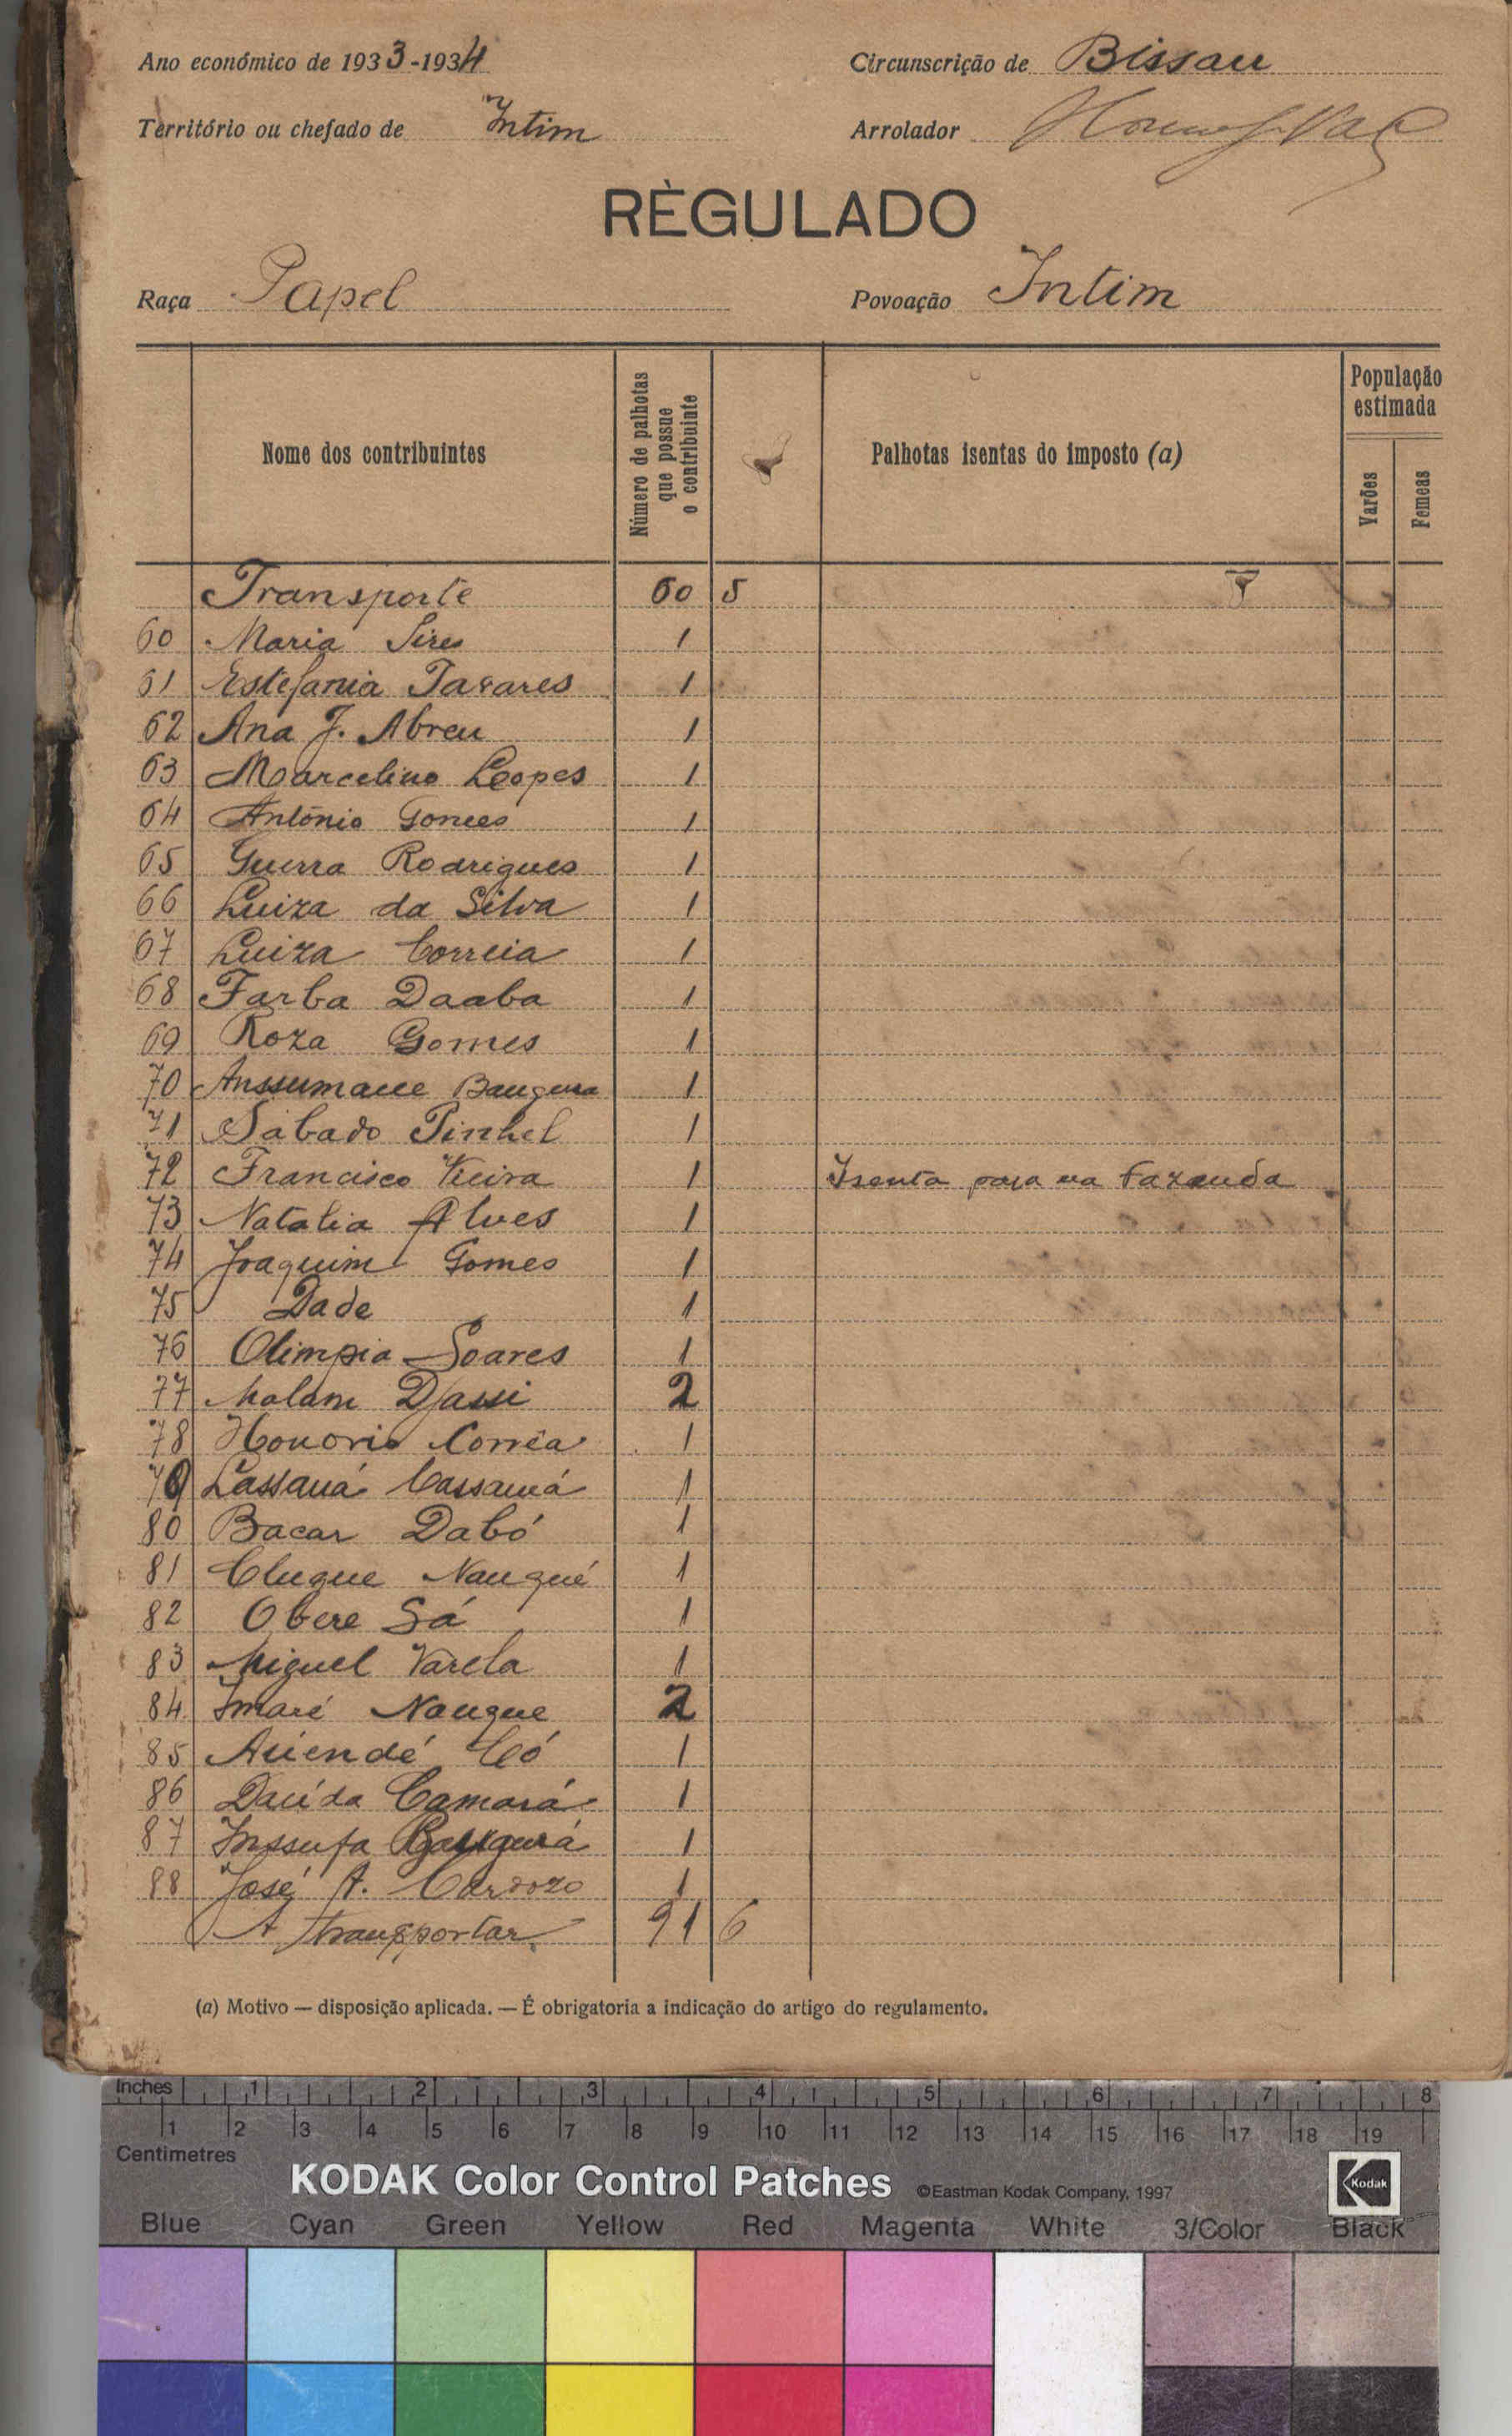 Ano económico de 1933-1934
Circunscrição de Bissau
Território ou chefado de Intim
Arrolador
RÈGULADO
Raça Papel
Povoação Intim
Nome dos contribuintes
Número de palhotas que possue o contribuinte
Palhotas isentas do imposto (a)
População estimada
Varões
Femeas
Transporte 60 5
60 Maria 1
61 Estefania Tavares 1
62 Ana J. Abreu 1
63 Marcelino Lopes 1
64 António Gomes 1
65 Guerra Rodrigues 1
66 Luiza da Silva 1
67 Luiza Correia 1
68 Farba Daaba 1
69 Roza Gomes 1
70 Anssumane Bangura 1
71 Sabado Pinhel 1
72 Francisco Vieira 1 Isenta paga na Fazenda
73 Natalia Alves 1
74 Joaquim Gomes 1
75 Dade 1
76 Olimpia Soares 1
77 Malam Djassi 2
78 Honorio Corrêa 1
79 Lassaná Cassamá 1
80 Bacar Dabó 1
81 Clugue Nanqué 1
82 Obere Sá 1
83 Miguel Varela 1
84 Imaré Nanque 2
85 Có 1
86 Daúda Camará 1
87 Inssufa Bangurá 1
88 José A. Cardozo 1
A transportar 91 6
(a) Motivo — disposição aplicada. — É obrigatoria a indicação do artigo do regulamento.
Inches 1 2 3 4 5 6 7 8
1 2 3 4 5 6 7 8 9 10 11 12 13 14 15 16 17 18 19
Centimetres
KODAK Color Control Patches ©Eastman Kodak Company, 1997 Kodak
Blue Cyan Green Yellow Red Magenta White 3/Color Black